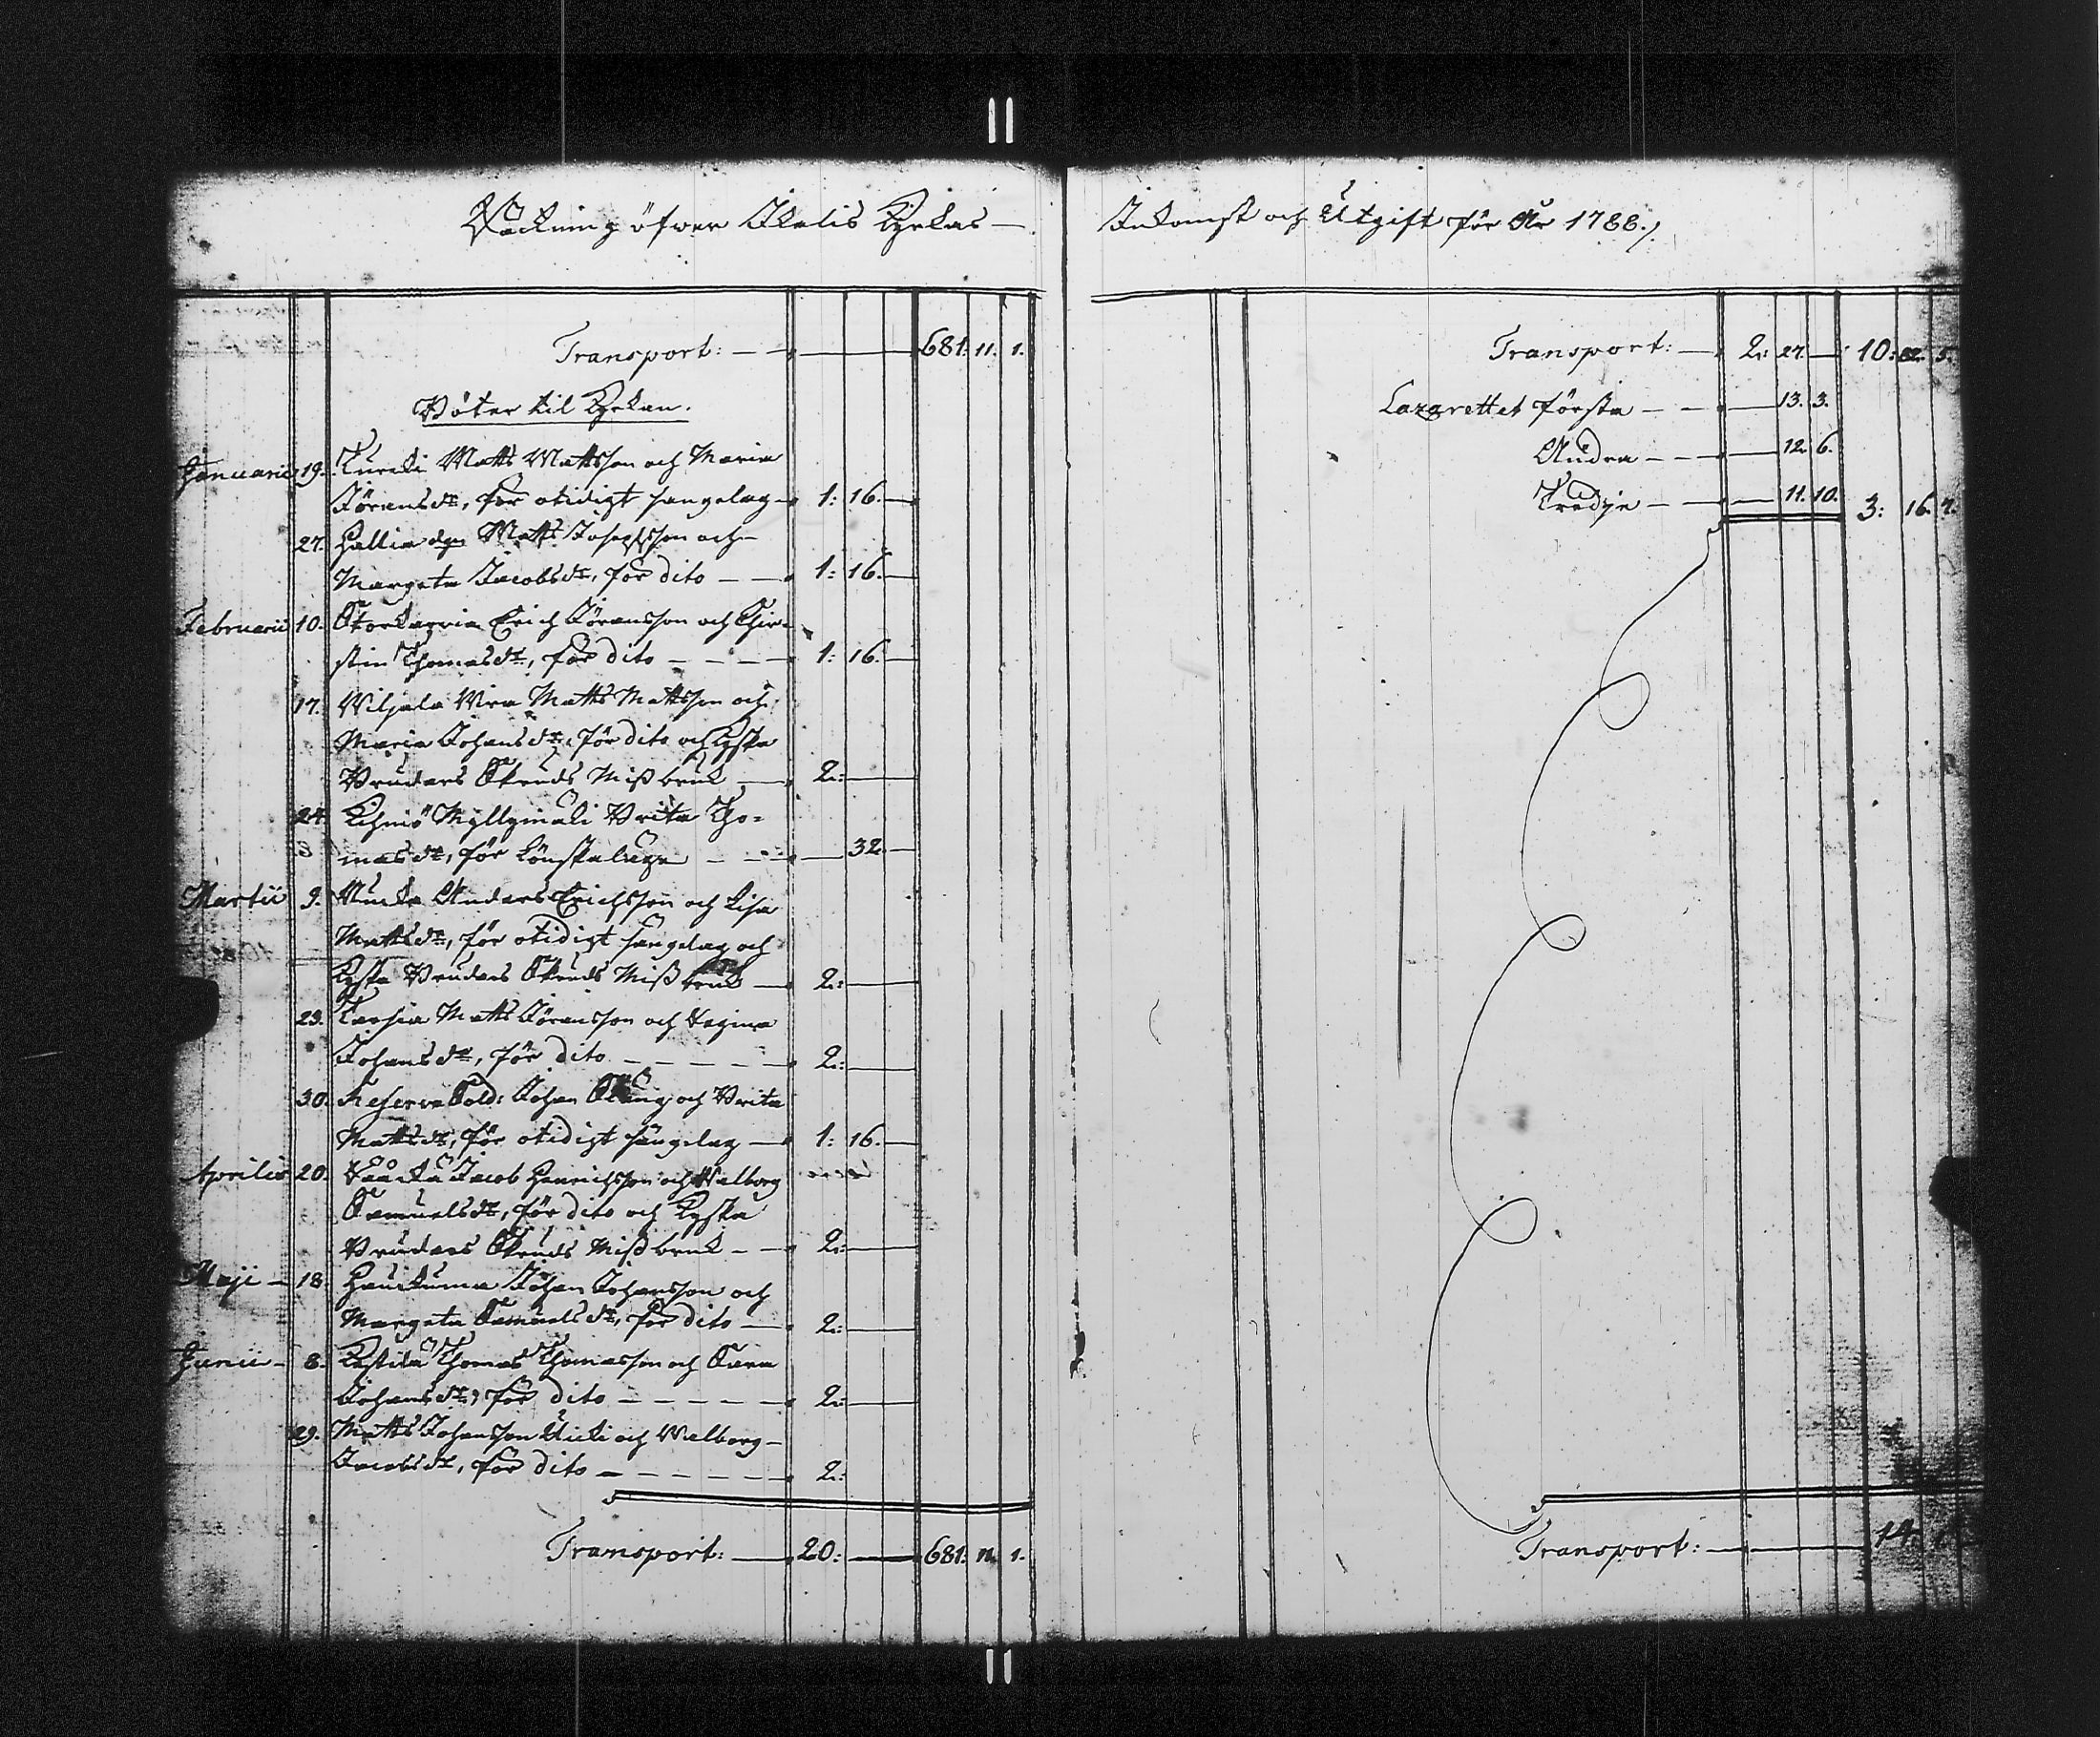 Räckning öfwer Ikalis Kyrkas —
Transport: — — 681. 11. 1.
Böter til Kyrkan.
Januarii 19. Kureki Matts Mattsson och Maria
Jöransdr, för otidigt sängelag — 1: 16. —
27. Hallia dgn Matts Josephsson och
Margeta Jacobsdr, för dito — — 1: 16. —
Februarii 10. Storkarria Erich Jöransson och Chir-
stin Thomasdr, för dito — — — — 1: 16. —
17. Wiljala Wira Matts Mattsson och
Maria Johansdr, för dito och Kyska
Brudars Skruds Missbruk — 2: —
24. Kihniö Myllymäki Brita Tho-
masdr, för Lönskaläge — — — 32. —
Martii 9. Anders Erichsson och Lisa
Mattsdr, för otidigt sängelag och
Kyska Brudars Skruds Missbruk — 2: —
23. Matts Jöransson och Regina
Johansdr, för dito — — — — — 2: —
30. Reserve Sold: Johan och Brita
Mattsdr, för otidigt sängelag — 1: 16. —
Aprilis 20. Jacob Henrichsson och Walborg
Samuelsdr, för dito och Kyska
Brudars Skruds Missbruk — — 2: —
Maji — 18. Johan Johansson och
Margeta Samuelsdr, för dito — 2: —
Junii — 8. Thomas Thomasson och Sara
Johansdr, för dito — — — — — 2: —
29. Matts Johansson och Walborg —
Jacobsdr, för dito — — — — — — 2:
Transport: — 20: — 681. 11. 1.
Inkomst och Utgift för År 1788./.
Transport: — 2: 27. — 10: 32. 5.
Lazarettet första — — — 13. 3.
Andra — — — 12. 6.
Tredje — — 11. 10. 3: 16. 7.
Transport: — 14.